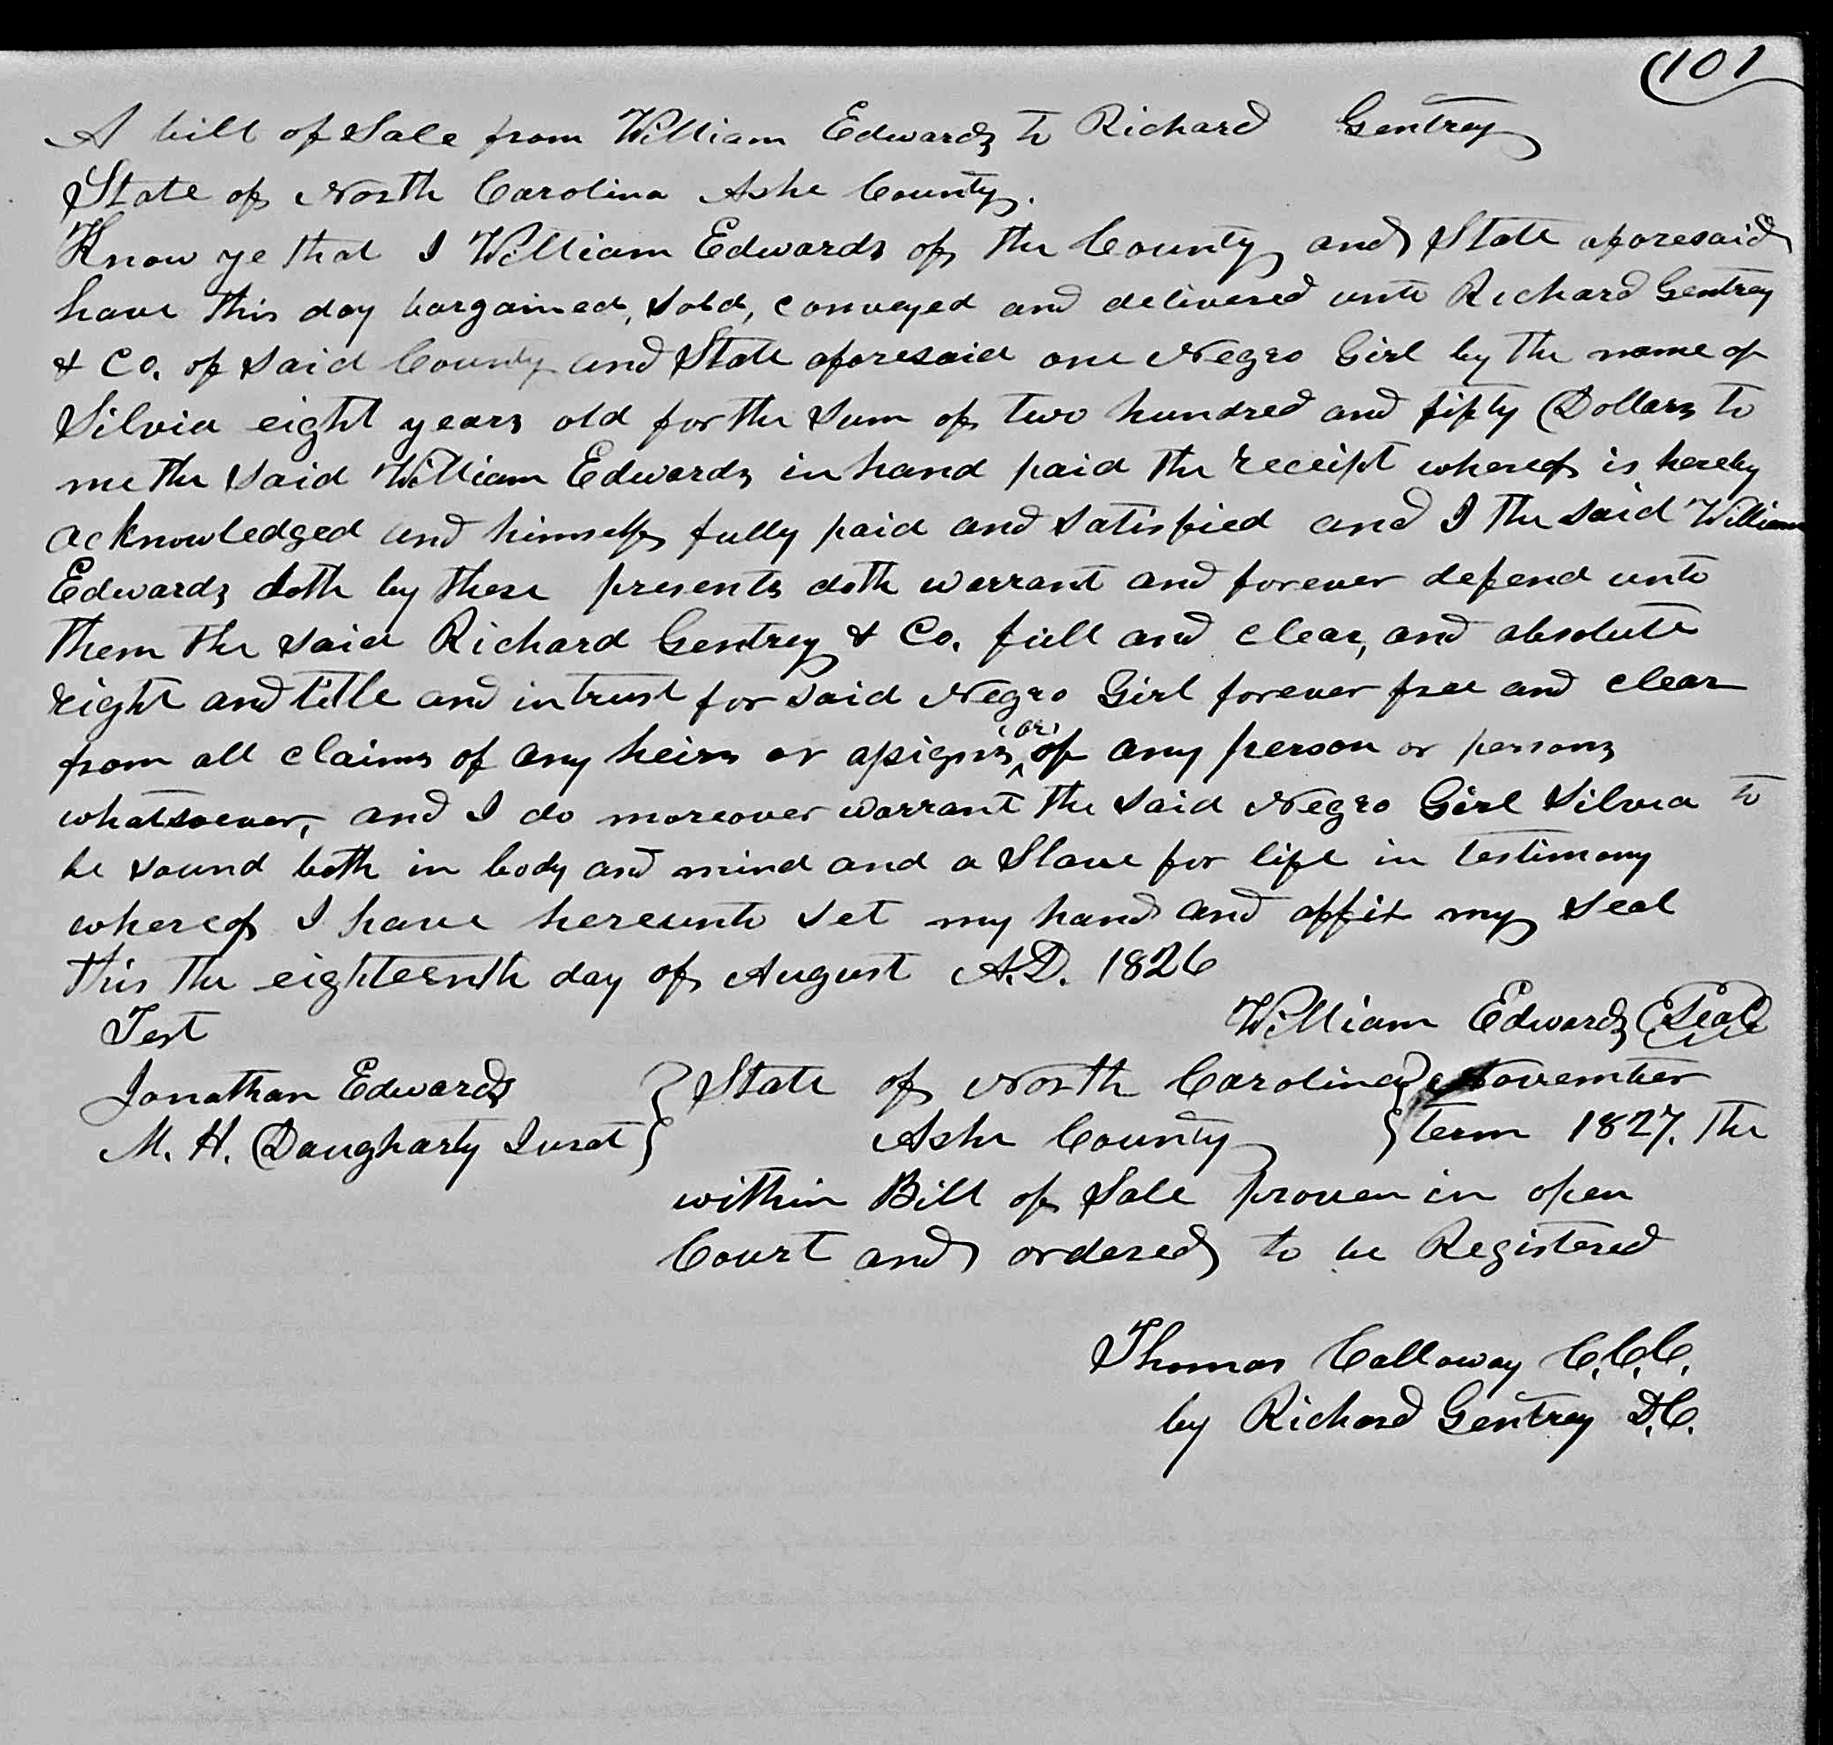 (101
A bill of Sale from William Edwards to Richard Gentrey
State of North Carolina Ashe County.
Know ye that I William Edwards of the County and State aforesaid
have this day bargained, sold, conveyed and delivered unto Richard Gentrey
& Co. of said County and State aforesaid one Negro Girl by the name of
Silvia eight years old for the sum of two hundred and fifty Dollars to
me the said William Edwards in hand paid the receipt whereof is hereby
acknowledged and himself fully paid and satisfied and I the said William
Edwards doth by these presents doth warrant and forever defend unto
them the said Richard Gentrey & Co. full and clear, and absolute
right and title and intrust for said Negro Girl forever free and clear
from all claims of any heirs or assigns ^(or) of any person or persons
whatsoever, and I do moreover warrant the said Negro Girl Silvia to
be sound both in body and mind and a Slave for life in testimony
whereof I have hereunto set my hand and affix my seal
this the eighteenth day of August A.D. 1826
William Edwards (Seal)
Test
Jonathan Edwards
M. H. Daugharty Jurat
State of North Carolina } November
Ashe County } term 1827. The
within Bill of Sale proven in open
Court and ordered to be Registered
Thomas Calloway C.C.C.
by Richard Gentrey D.C.